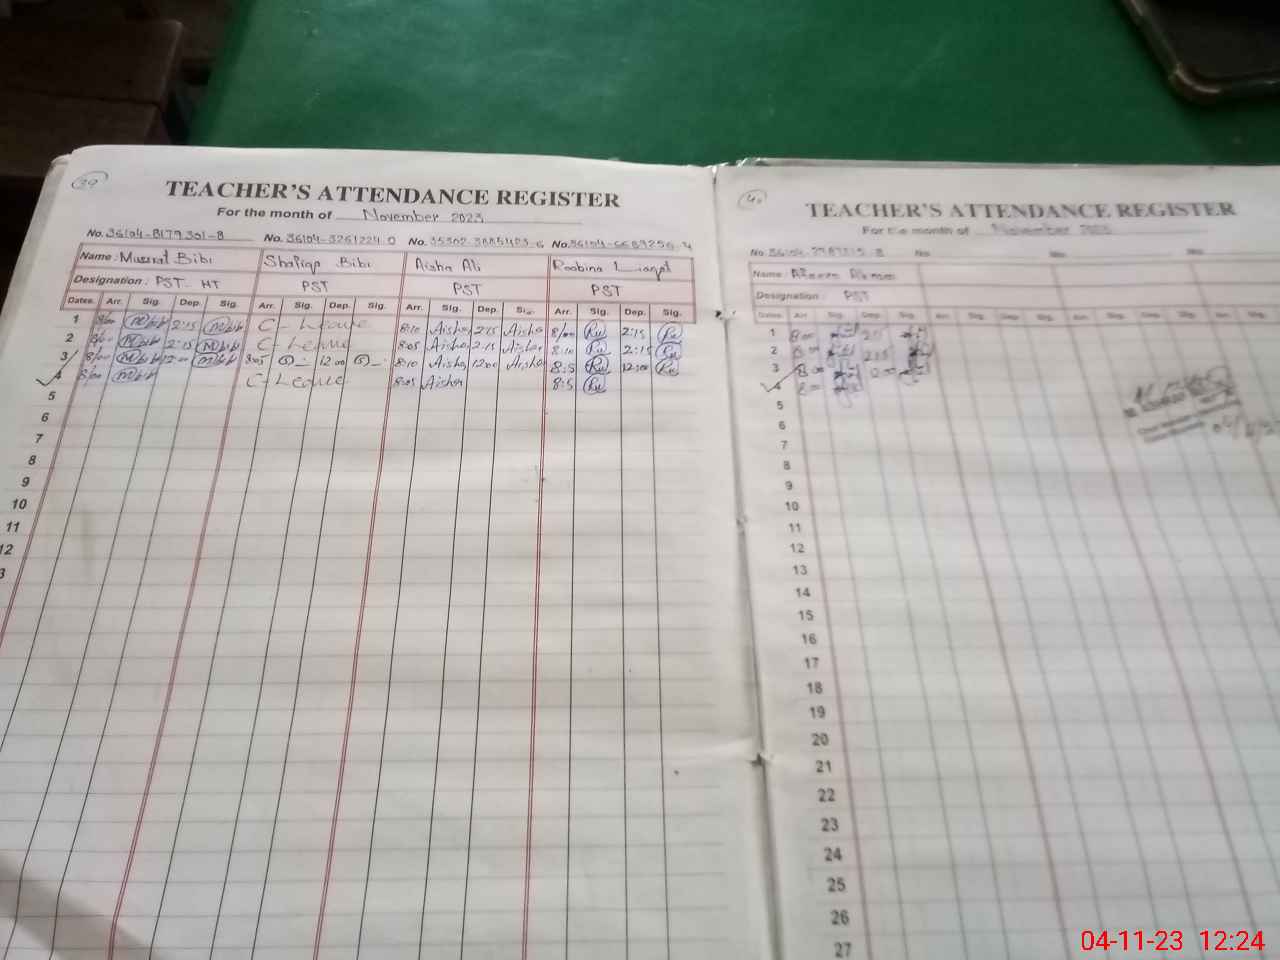 39
TEACHER'S ATTENDANCE REGISTER
For the month of November 2023
No. 36104-8179301-8 No. 36104-3261224-0 No. No.
Name: Musrat Bibi Shafiqa Bibi Aisha Ali Roobina Liaqat
Designation: PST-HT PST PST PST
Dates. Arr. Sig. Dep. Sig. Arr. Sig. Dep. Sig. Arr. Sig. Dep. Sig. Arr. Sig. Dep. Sig.
1 8/00 Mbibi 2:15 Mbibi C-Leave 8:10 Aisha 2:15 Aisha 8/00 Ru 2:15 Ru
2 8/00 Mbibi 2:15 Mbibi C-Leave 8:05 Aisha 2:15 Aisha 8:10 Ru 2:15 Ru
3 8/00 Mbibi 12:00 Mbibi 8:05 12:00 8:10 Aisha 12:00 Aisha 8:5 Ru 12:00 Ru
4 8/00 Mbibi C-Leave 8:05 Aisha 8:5 Ru
5
6
7
8
9
10
11
12
3
40
TEACHER'S ATTENDANCE REGISTER
For the month of November 2023
No. No. No. No.
Name:
Designation: PST
Dates. Arr. Sig. Dep. Sig. Arr. Sig. Dep. Sig. Arr. Sig. Dep. Sig. Arr. Sig.
1 8:00 2:15
2 8:00 2:15
3 8:00 12:00
4 8:00
5
6
7
8
9
10
11
12
13
14
15
16
17
18
19
20
21
22
23
24
25
26
27
04-11-23 12:24